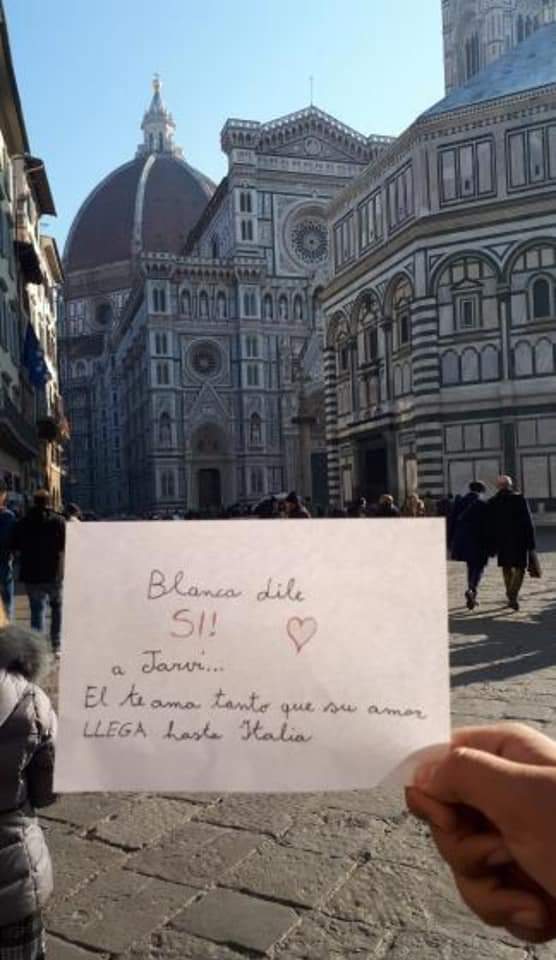 Blanca dile
SI!
a Jarvi...
El te ama tanto que su amor
LLEGA hasta Italia